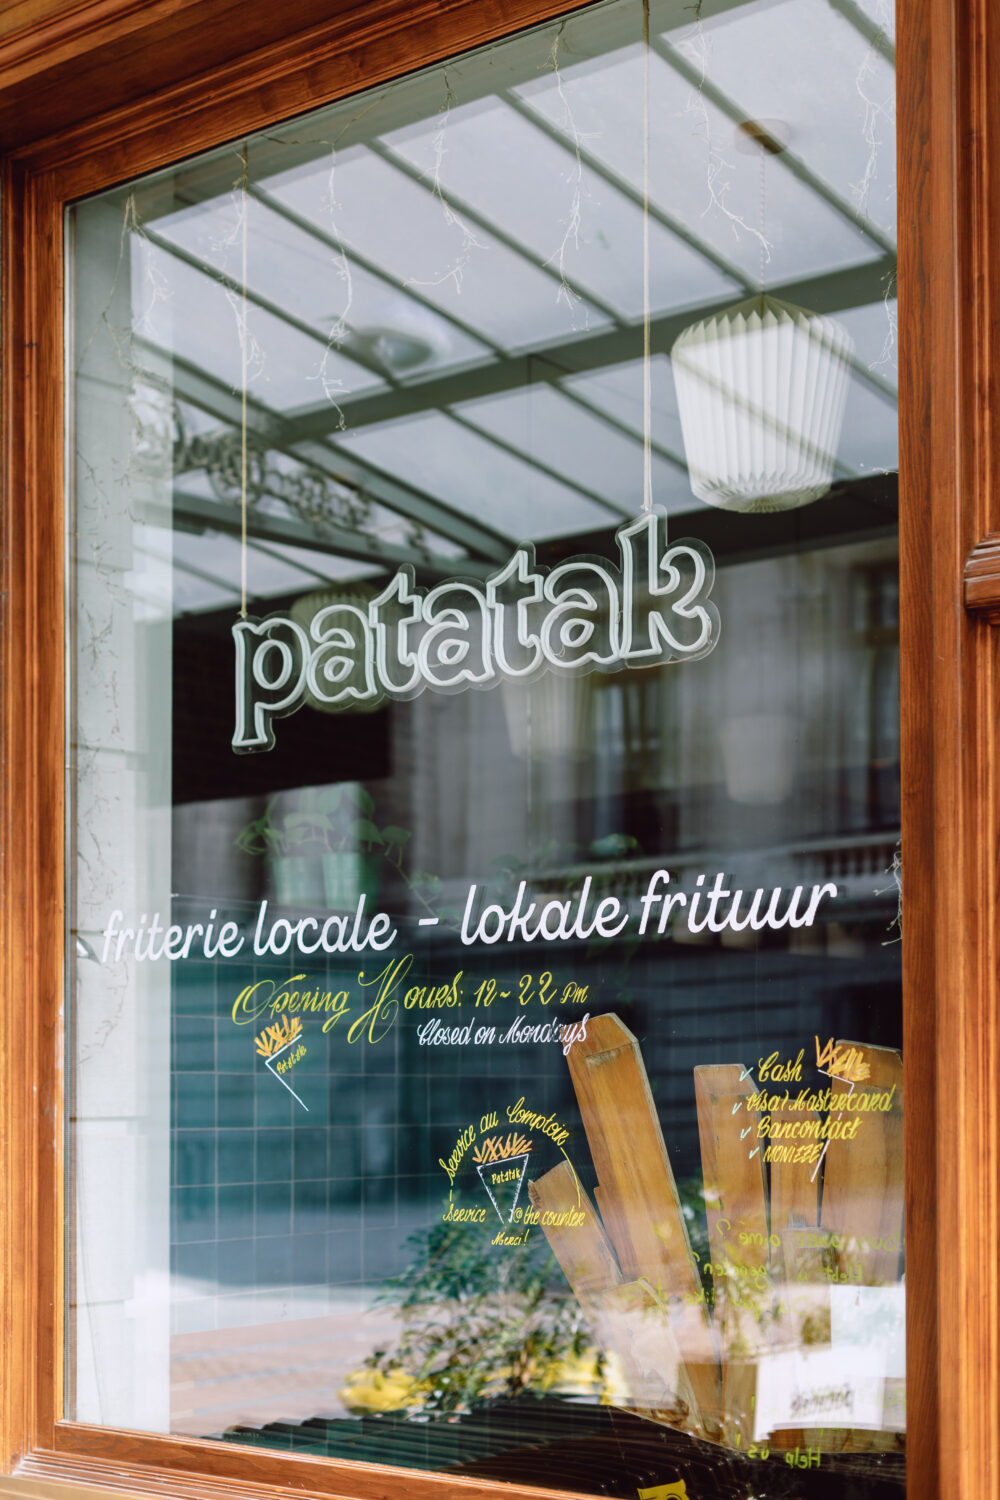 patatak
friterie locale - lokale frituur
Opening Hours: 12~22 PM
Closed on Mondays
Patatak
Service au Comptoir
Patatak
Service @ the counter
Merci!
✓ Cash
✓ Visa / Mastercard
✓ Bancontact
✓ MONIZZE
Help us!